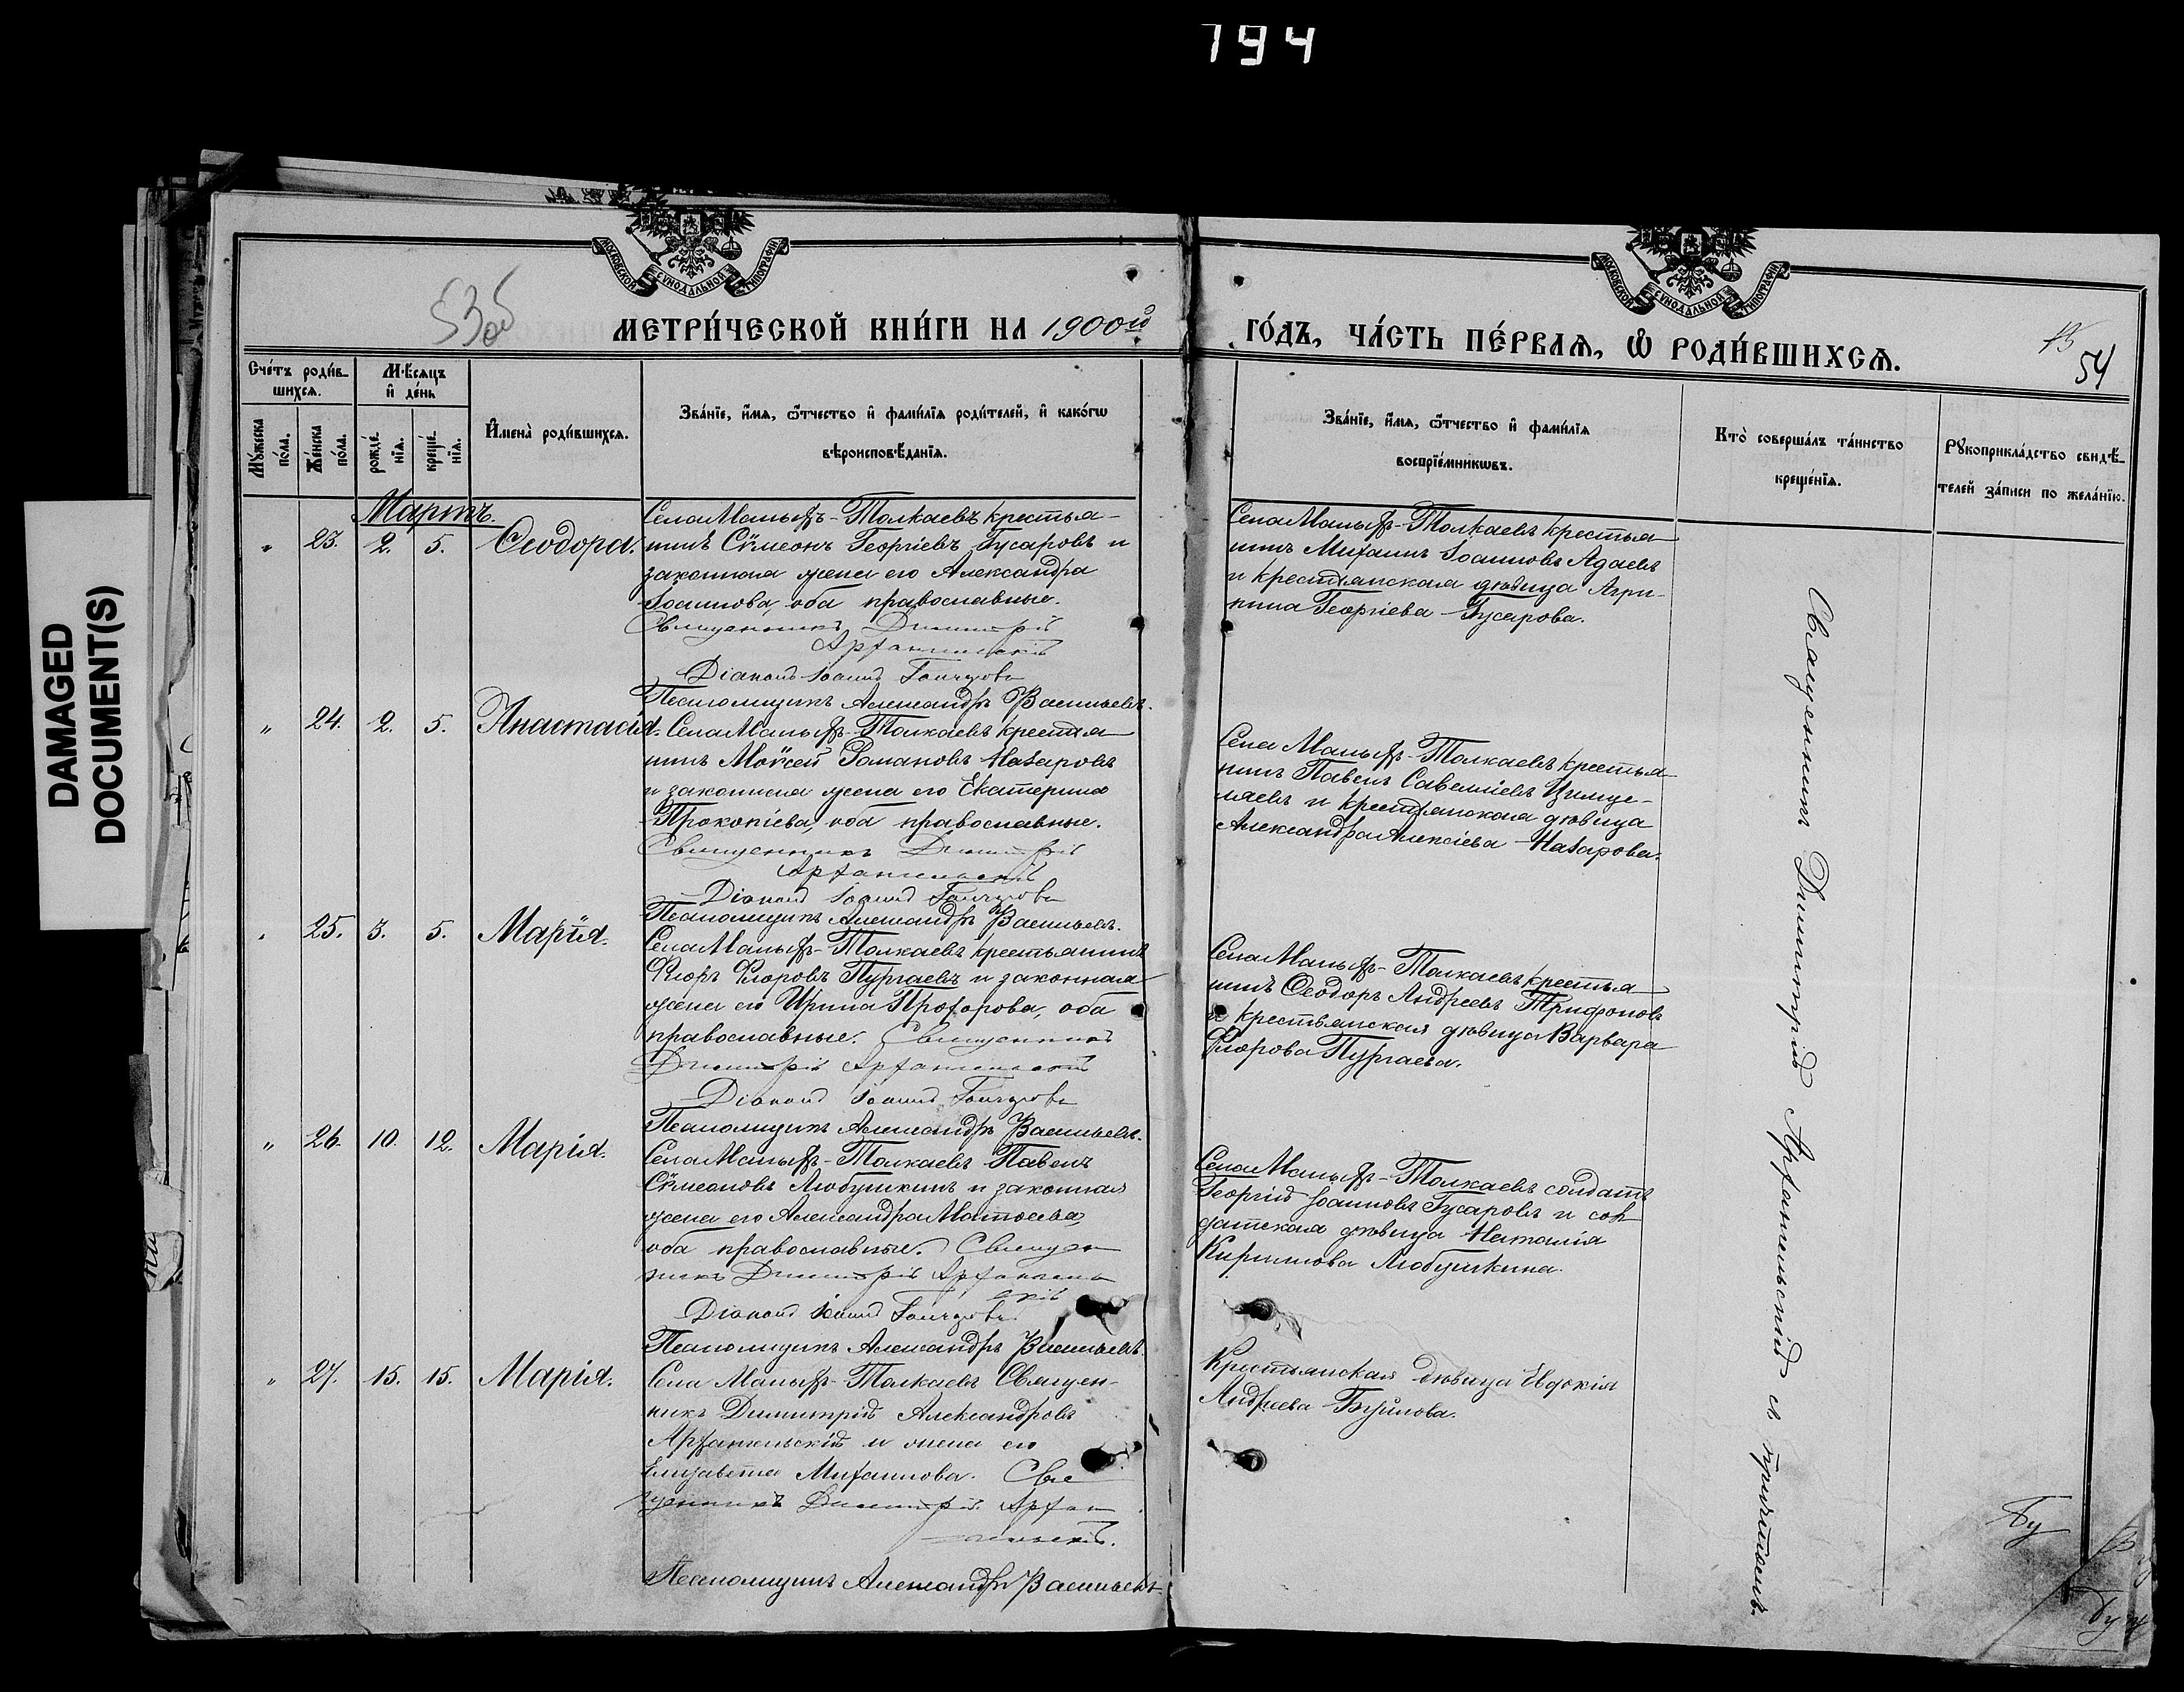 794
DAMAGED
DOCUMENT(S)
МОСКОВСКОЙ СѴНОДАЛЬНОЙ ТИПОГРАФІИ
МОСКОВСКОЙ СѴНОДАЛЬНОЙ ТИПОГРАФІИ
53об
МЕТРИ́ЧЕСКОЙ КНИ́ГИ НА 1900ый
ГО́ДЪ, ЧА́СТЬ ПЕ́РВАЯ, Ѡ҆ РОДИ́ВШИХСЯ.
54
Сче́тъ роди́в-
шихся.
Мѣ́сяцъ
и҆ де́нь
Му́жеска
по́ла.
Же́нска
по́ла.
рожде́-
нїя.
креще́-
нїя.
И҆мена̀ роди́вшихся.
Зва́нїе, и҆́мя, ѻ҆́тчество и҆ фами́лїя роди́телей, и҆ како́гѡ
вѣроисповѣ́данїя.
Зва́нїе, и҆́мя, ѻ҆́тчество и҆ фами́лїя
воспрїе́мникѡвъ.
Кто̀ соверша́лъ та́инство
креще́нїя.
Рꙋкоприкла́дство свидѣ́-
телей за́писи по жела́нїю.
Мартъ.
„ 23. 2. 5. Ѳеодора.
Села Малыхъ-Толкаевъ крестья-
нинъ Сѵмеонъ Георгіевъ Гусаровъ и
законная жена его Александра
Іоаннова, оба православные.
Священникъ Димитрій
Архангельскій
Діаконъ Іоаннъ
Псаломщикъ Александръ Васильевъ.
Села Малыхъ-Толкаевъ крестья-
нинъ Михаилъ Іоанновъ Адаевъ
и крестьянская дѣвица Агри-
пина Георгіева Гусарова.
„ 24. 2. 5. Анастасія.
Села Малыхъ-Толкаевъ крестья-
нинъ Моѵсей Романовъ Назаровъ
и законная жена его Екатерина
Прокопіева, оба православные.
Священникъ Димитрій
Архангельскій
Діаконъ Іоаннъ
Псаломщикъ Александръ Васильевъ.
Села Малыхъ-Толкаевъ крестья-
нинъ Павелъ Савеліевъ
и крестьянская дѣвица
Александра Алексіева Назарова.
„ 25. 3. 5. Марія.
Села Малыхъ-Толкаевъ крестьянинъ
Флоръ Флоровъ Пургаевъ и законная
жена его Ирина Прохорова, оба
православные. Священникъ
Димитрій Архангельскій
Діаконъ Іоаннъ
Псаломщикъ Александръ Васильевъ.
Села Малыхъ-Толкаевъ крестья-
нинъ Ѳеодоръ Андреевъ Трифоновъ
и крестьянская дѣвица Варвара
Флорова Пургаева.
„ 26. 10. 12. Марія.
Села Малыхъ-Толкаевъ Павелъ
Сѵмеоновъ Любушкинъ и законная
жена его Александра Матѳеева,
оба православные. Священ
никъ Димитрій Архангель
скій
Діаконъ Іоаннъ
Псаломщикъ Александръ Васильевъ.
Села Малыхъ-Толкаевъ солдатъ
Георгій Іоанновъ Гусаровъ и сол-
датская дѣвица Наталія
Кириллова Любушкина.
„ 27. 15. 15. Марія.
Села Малыхъ-Толкаевъ Священ-
никъ Димитрій Александровъ
Архангельскій и жена его
Елизавета Михаилова. Свя
щенникъ Димитрій Архан
гельскій.
Псаломщикъ Александръ Васильевъ
Крестьянская дѣвица Евдокія
Андреева
Священникъ Димитрій Архангельскій съ причтомъ.